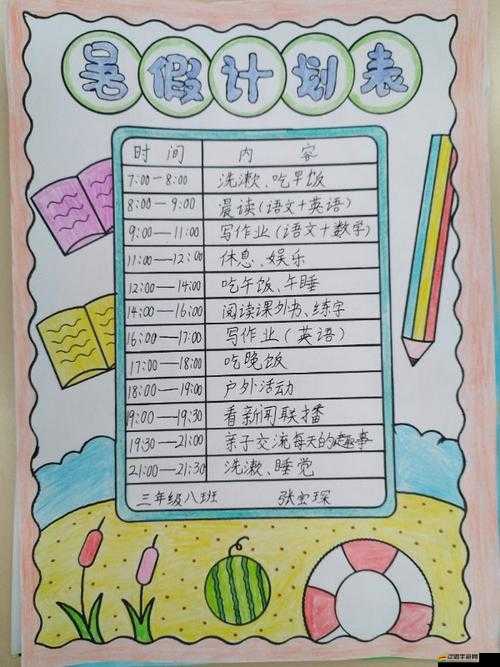 暑假计划表
时 间 内 容
7:00—8:00 洗漱、吃早饭
8:00—9:00 晨读(语文+英语)
9:00—11:00 写作业(语文+数学)
11:00—12:00 休息、娱乐
12:00—14:00 吃午饭、午睡
14:00—16:00 阅读课外书、练字
16:00—17:00 写作业(英语)
17:00—18:00 吃晚饭
18:00—19:00 户外活动
19:00—19:30 看新闻联播
19:30—21:00 亲子交流每天的趣事
21:00—21:30 洗漱、睡觉
三年级八班 张宝琛